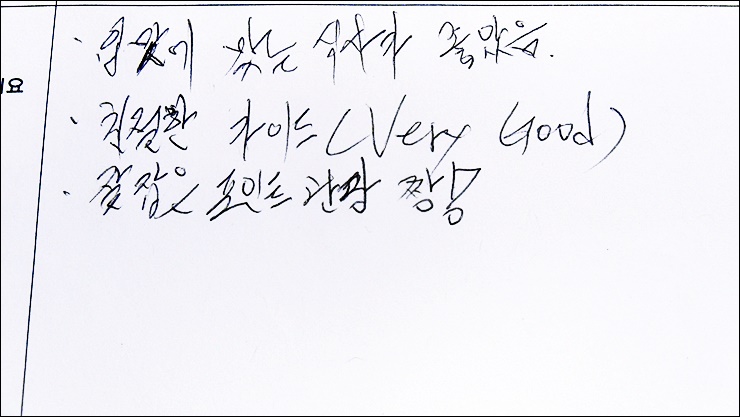 · 입맛에 맞는 식사가 좋았음.
· 친절한 가이드 (Very Good)
· 포인트 관광 짱